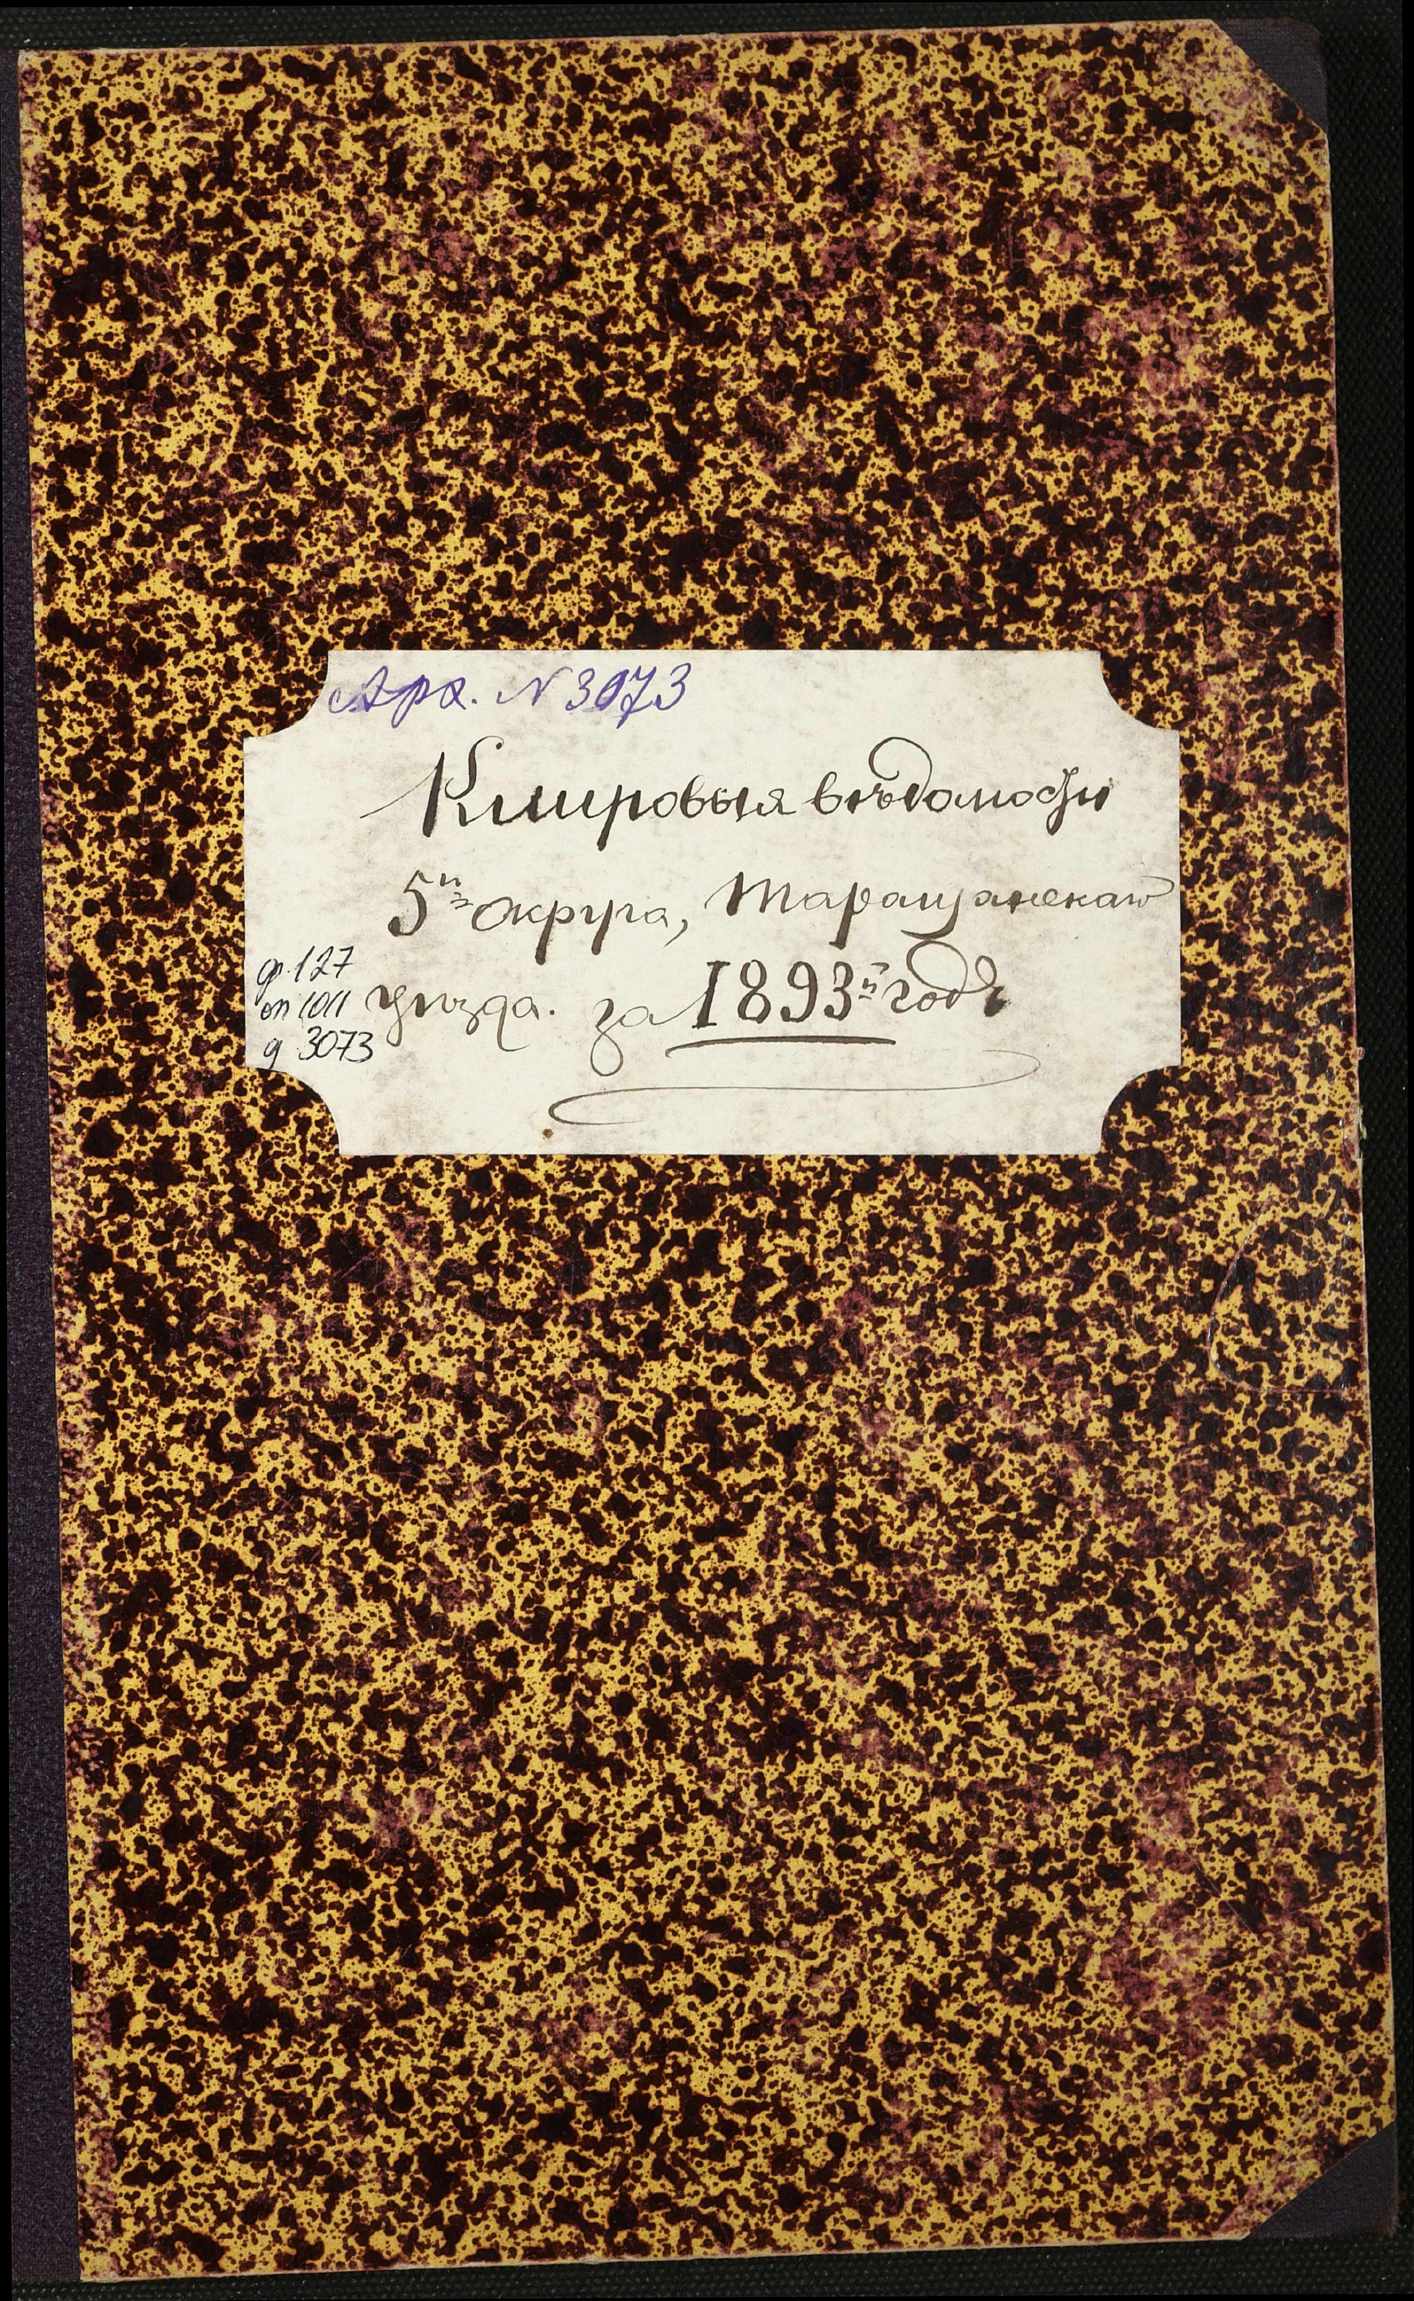 Арх. N 3073
Клировыя вѣдомости
5го округа, Таращанскаго
ф. 127
оп 1011
д 3073
уѣзда. за 1893й годъ